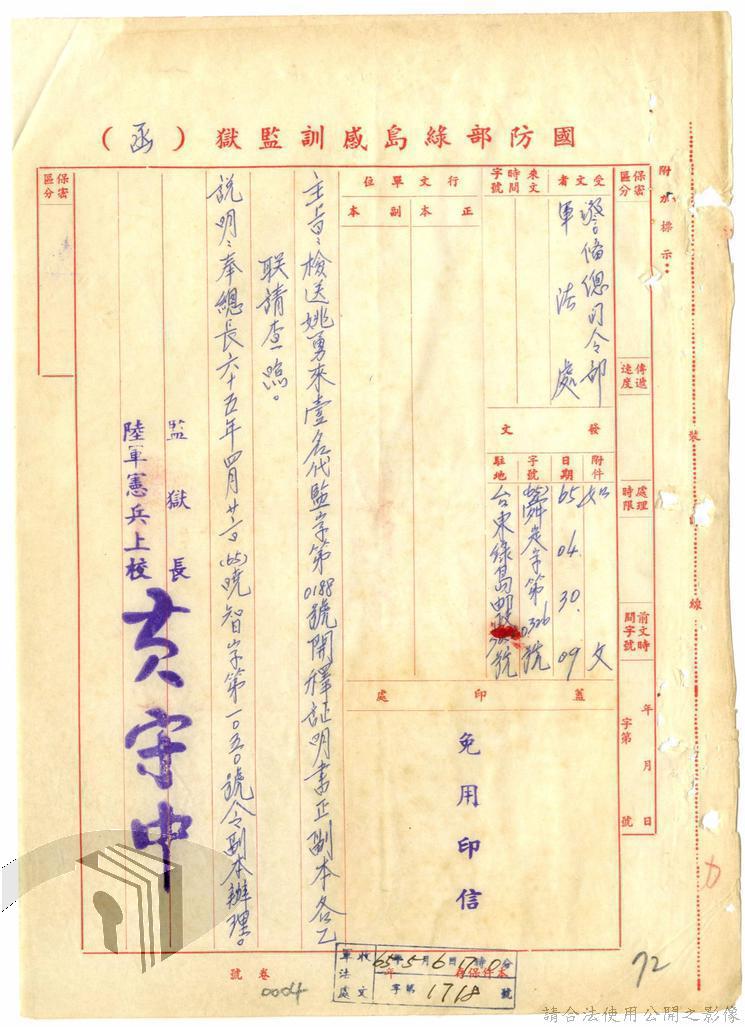 國防部綠島感訓監獄（函）
附加標示：
裝
線
保密區分
傳遞速度
處理時限
前文時間字號
年 月 日
字第 號
受文者
警備總司令部
軍法處
來文時間字號
行文單位
正本
副本
發文
附件
如文
日期
65 04. 30. 09
字號
(65) 字第0326號
駐地
台東綠島郵政 號
蓋印處
免用印信
主旨：檢送姚勇來壹名代監字第0188號開釋証明書正副本各乙
联請查照。
說明：奉總長六十五年四月廿 (65)曉智字第一〇五〇號令副本辦理。
監獄長
陸軍憲兵上校
黃守中
保密區分
軍法處
收文
65年5月6日17時0分
本件保存 年
字第1718號
卷號
0004
72
請合法使用公開之影像